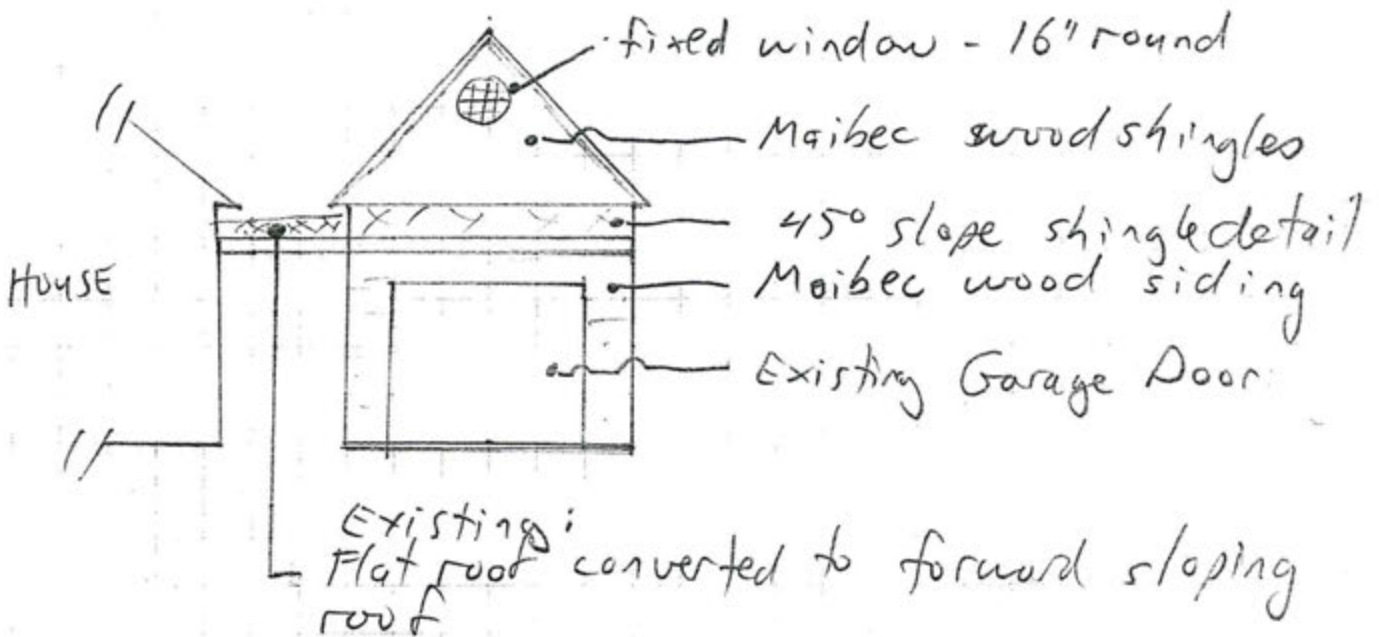 fixed window - 16" round
Maibec wood shingles
45° slope shingle detail
Maibec wood siding
HOUSE
Existing Garage Door
Existing:
Flat roof converted to forward sloping
roof